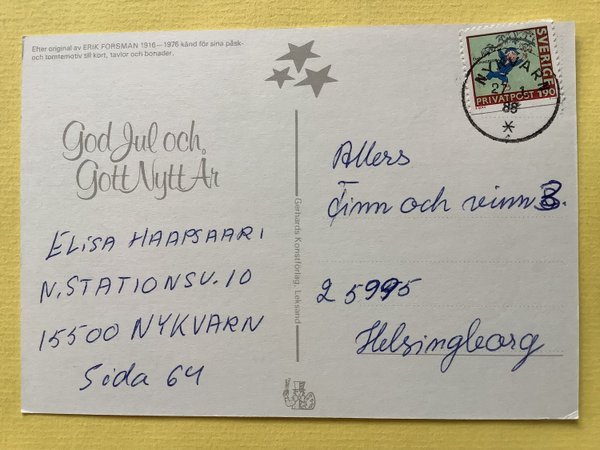 Efter original av ERIK FORSMAN 1916—1976 känd för sina påsk-
och tomtemotiv till kort, tavlor och bonader.
God Jul och
Gott Nytt År
ELISA HAAPSAARI
N. STATIONSV. 10
15500 NYKVARN
Sida 64
Gerhards Konstförlag, Leksand
SVERIGE
PRIVATPOST 190
27. 1
88
Allers
Finn och vinn B.
25995
Helsingborg